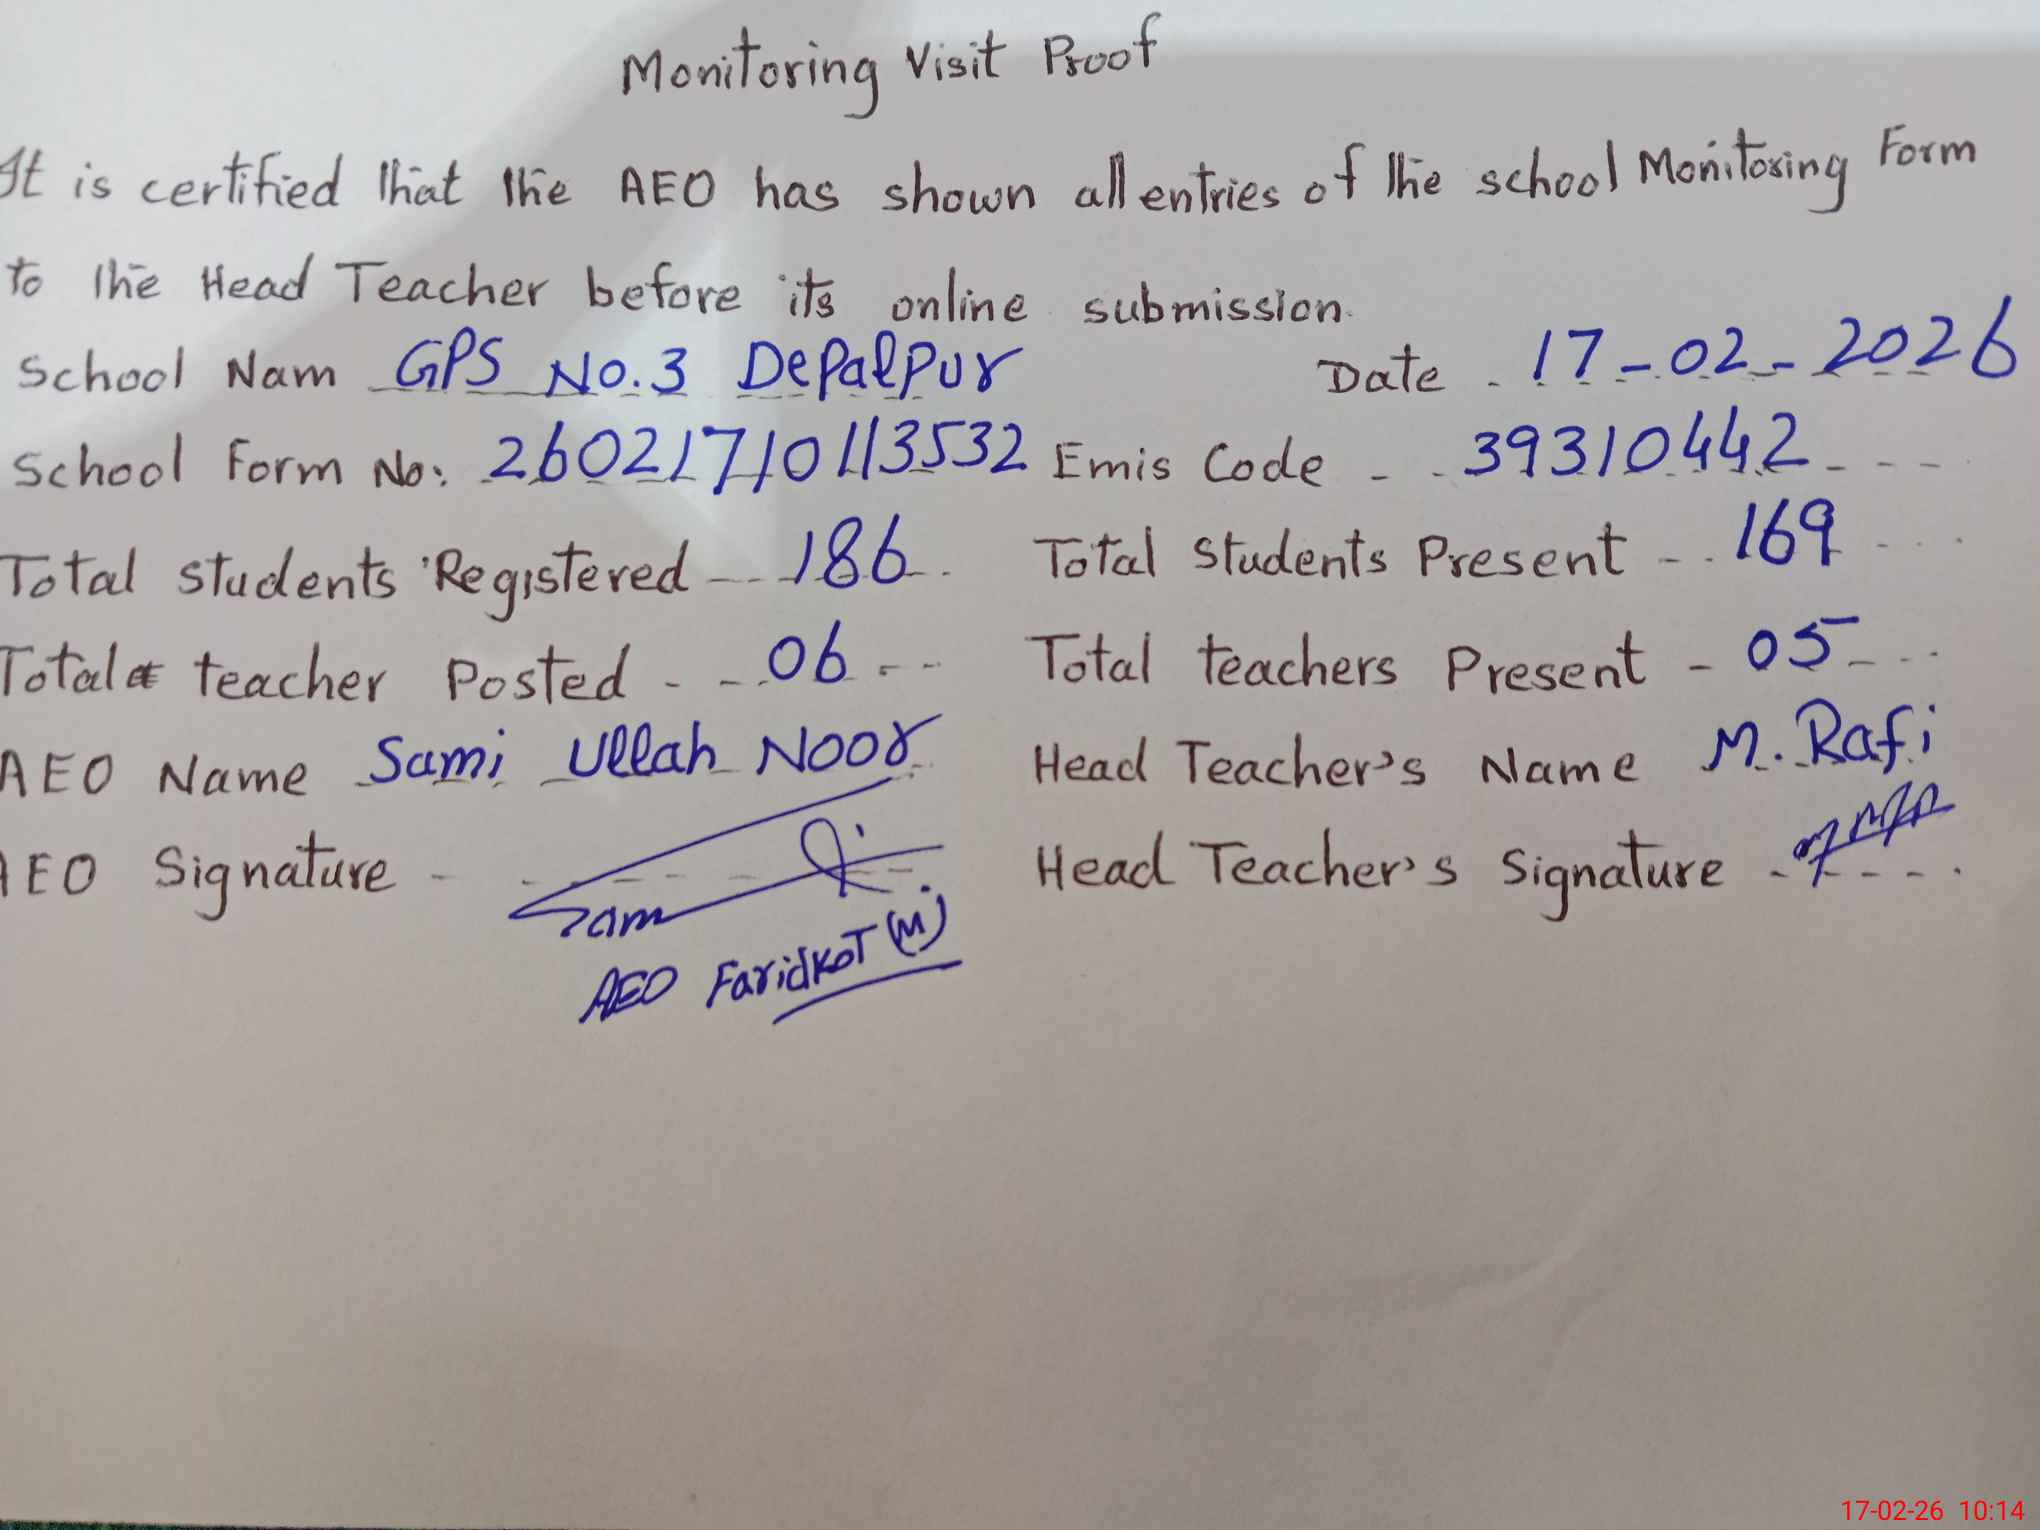 Monitoring Visit Proof
It is certified that the AEO has shown all entries of the school Monitoring Form
to the Head Teacher before its online submission.
School Nam GPS No.3 Depalpur Date 17-02-2026
School Form No: 260217710113532 Emis Code 39310442
Total students Registered 186 Total students Present 169
Total teacher Posted 06 Total teachers Present 05
AEO Name Sami Ullah Noor Head Teacher's Name M. Rafi
AEO Signature Sami Head Teacher's Signature
AEO Faridkot (M)
17-02-26 10:14